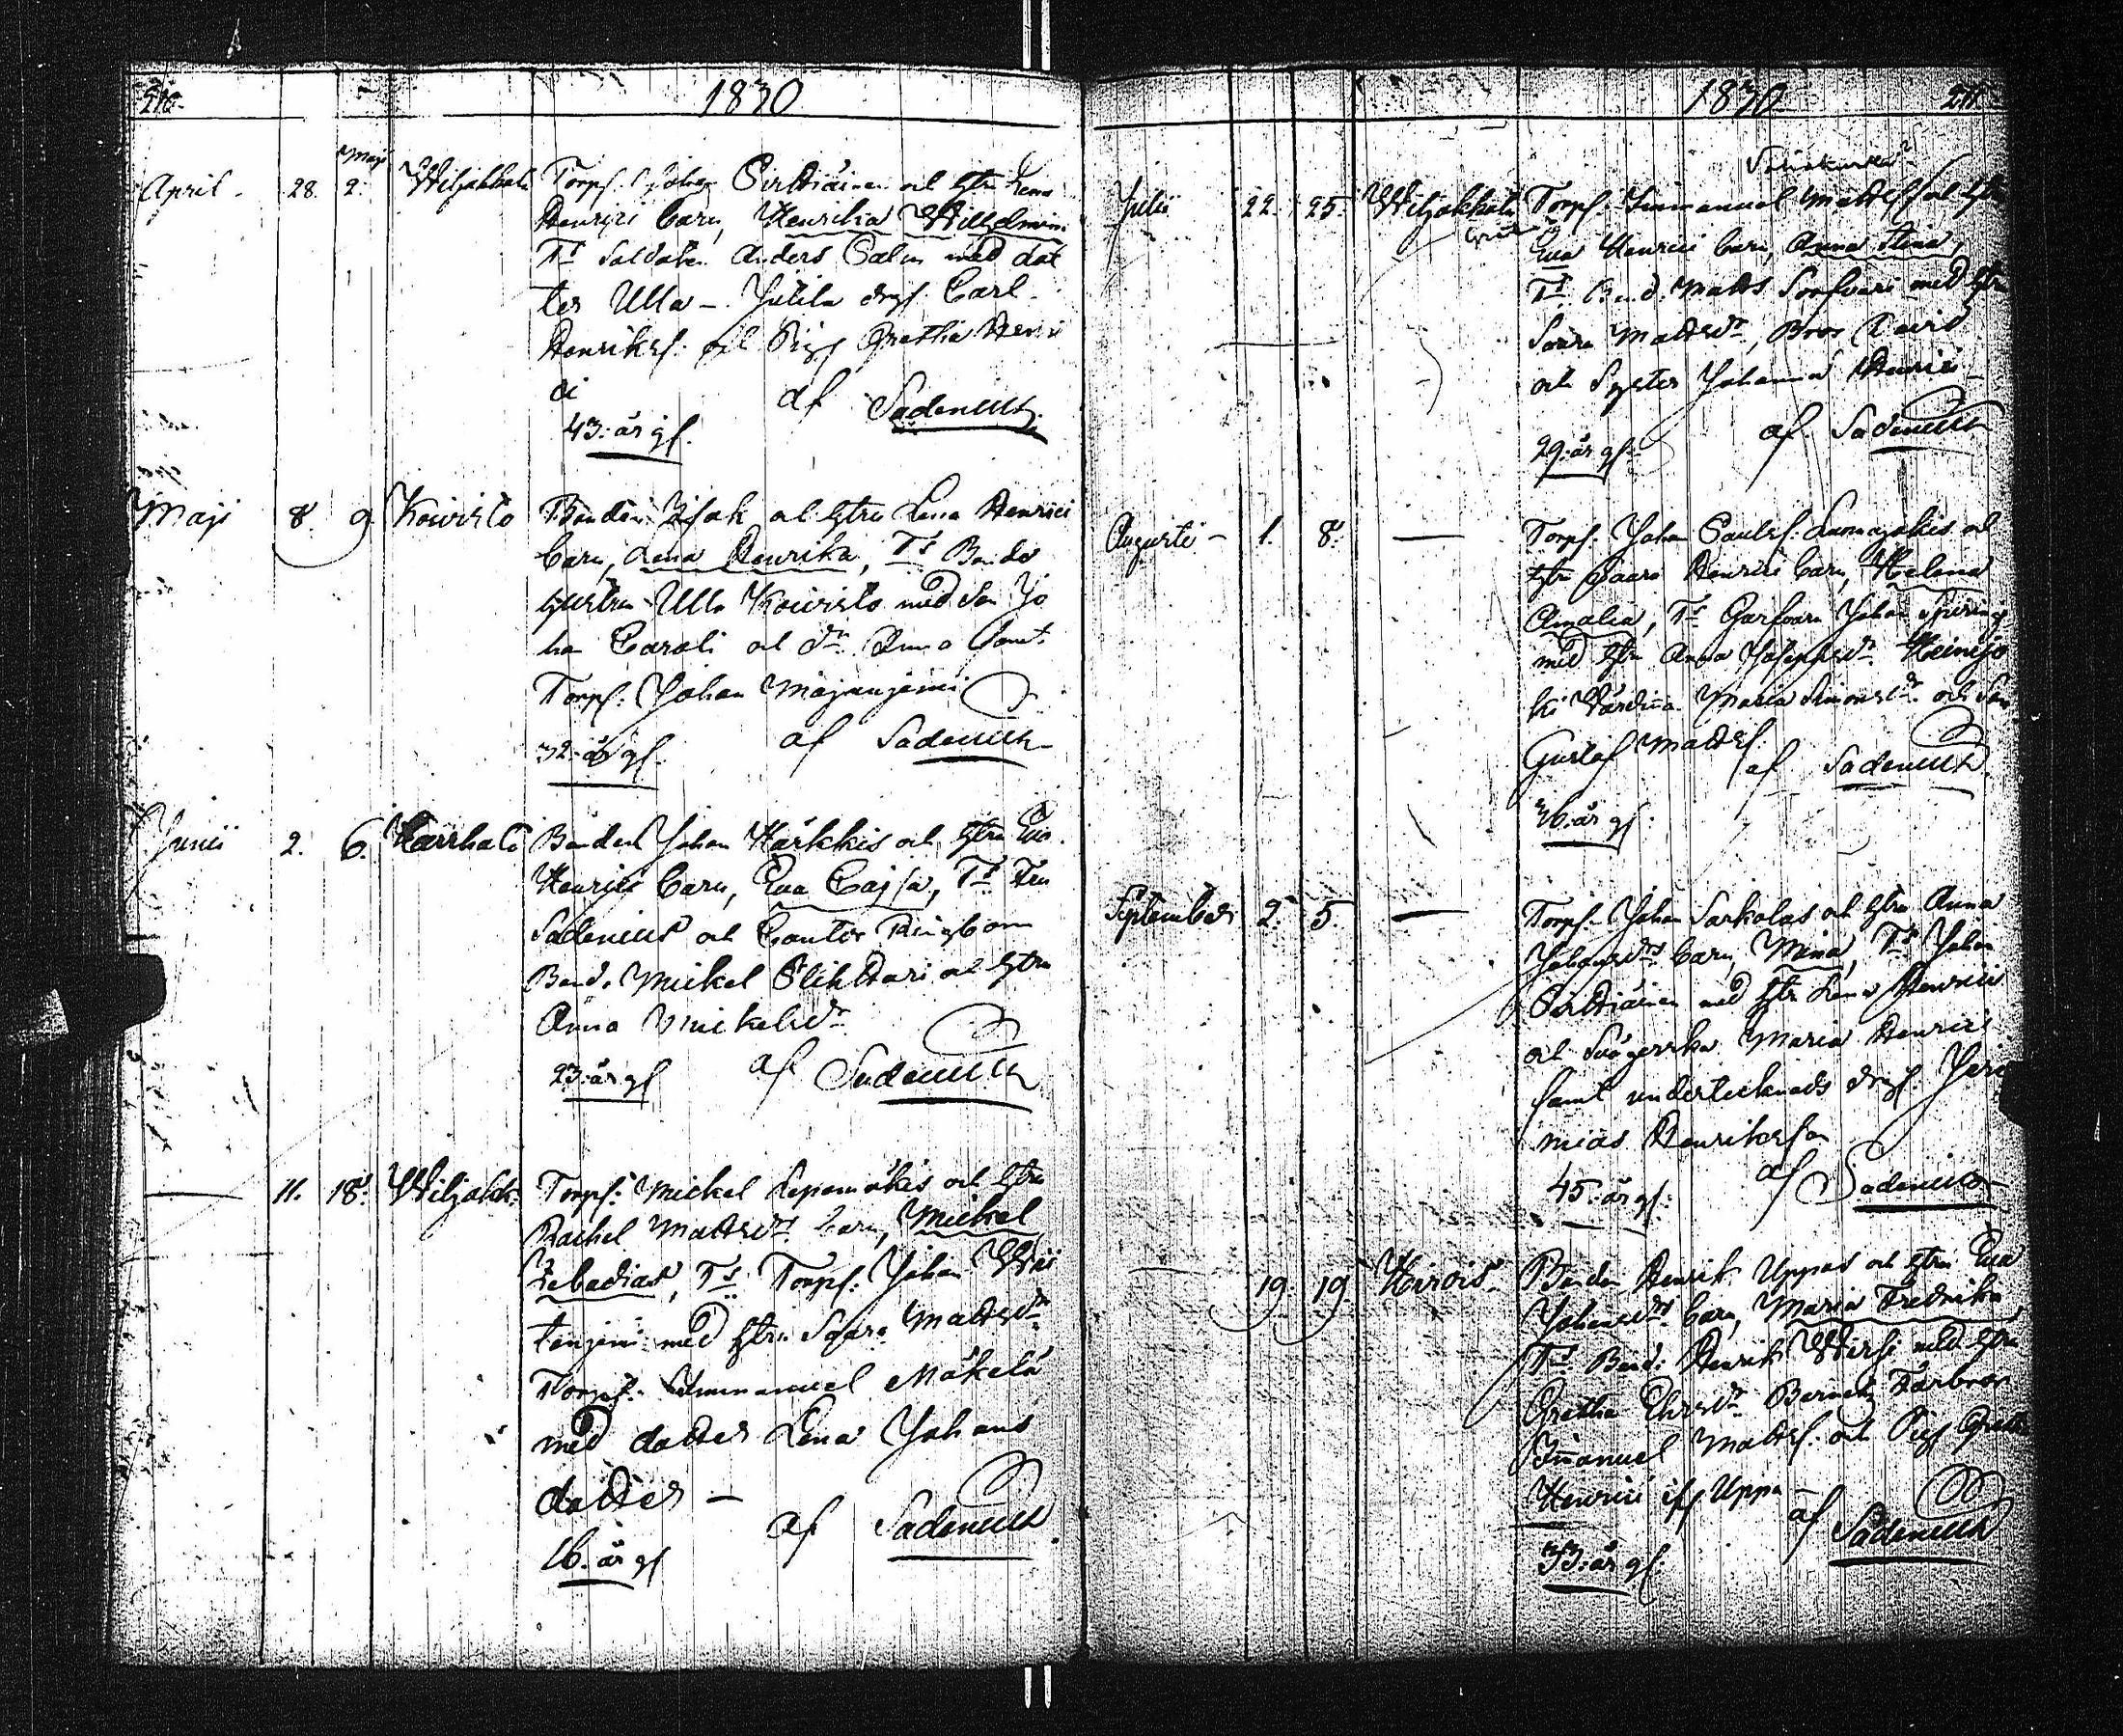 210.
1830
April. 28. Maji 2. Wiljakkala Torpf. Johan Pirttiäinen och Hstru Lena
Henrici barn, Henrika Wilhelmina
Ts Soldaten Anders Palm med dot
ter Ulla - Julila drgs. Carl
Henriksf. och Pig Gretha Henri
ci
43. år gl. af Sadenius.
Maji 8. 9. Koivisto Bonden Isak och Hstru Lena Henrici
barn, Lena Henrika, Ts Bonde
hustrun Ulla Koivisto med Son Jo
han Caroli och dr Anna samt
Torpf. Johan Majanjemi
32. år gl. af Sadenius
Junii 2. 6. Karrhati Bonden Johan Härkkis och Hstru Eva
Henrici barn, Eva Cajsa, Ts Fru
Sadenius och Cantor Ringbom
Bond. Mickel Ylihttari och Hstru
Anna Mickelsdr
23. år gl af Sadenius
— 11. 18. Wiljakk. Torpf. Mickel Lepamäkis och Hstru
Rachel Mattsdrs barn, Mickel
Zebadias, Ts Torpf. Johan Wii
tanjemi med Hstru Saara Mattsdr
Torpf. Immanuel Mäkelä
med dotter Lena Johans
dotter —
16. år gl af Sadenius.
1830 211.
Julii 22. 25. Wiljakkala Torpf. Immanuel Mattsf och Hstru
Eva Henrici barn, Anna Stina,
Ts Bond. Matts Sorfvari med Hstru
Saara Mattsdr, Bror David
och Syster Johanna Henrici
29. år gl. af Sadenius
Augusti - 1. 8. — Torpf. Johan Paulsf. Luomajokis och
Hstru Saara Henrici barn, Helena
Amalia, Ts Garfvarn Johan Spiring
med Hstru Anna Josephsdr Heinijo
ki Värdina Maria Simonsdr och Son
Gustaf Mattsf.
36. år gl. af Sadenius.
September 2. 5. — Torpf. Johan Sarkolas och Hstru Anna
Johansdrs barn, Mina, Ts Johan
Pirttiäinen med Hstru Lena Henrici
och Svägerska Maria Henrici
samt undertecknads drgs Jere
mias Henriksson
45. år gl. af Sadenius
19. 19. Hirvis. Bonden Henrik Uppas och Hstru Eva
Johansdrs barn, Maria Fredrika,
Ts Bond. Henrik Wirfi med Hstru
Gretha Ehrsdr Barnets Farbror
Immanuel Mattsf. och Pig Gretha
Henrici ifr Uppa -
33. år gl. af Sadenius